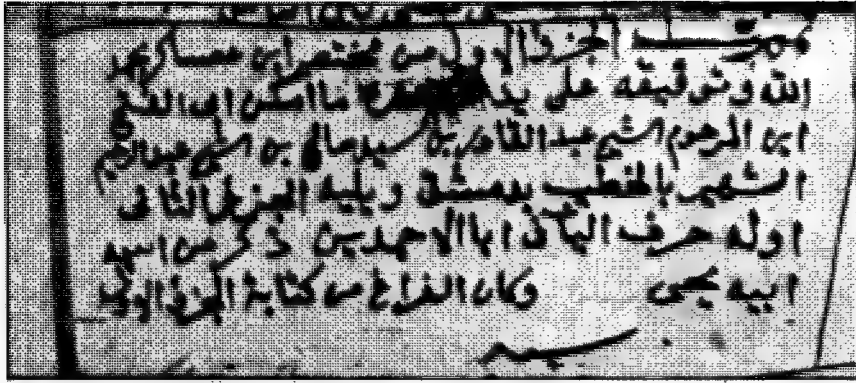 تم الجزء الاول من مختصر ابن عساكر بحمد
الله وتوفيقه على يد ما امكن ابى الفتح
ابن المرحوم الشيخ عبدالقادر بن السيد صالح بن الشيخ عبدالرحيم
الشهير بالخطيب بدمشق ويليه الجزء الثانى
اوله حرف التاء فى اباء الاحمدين ذكر من اسم
ابيه يحيى وكان الفراغ من كتابة الجزء الاول